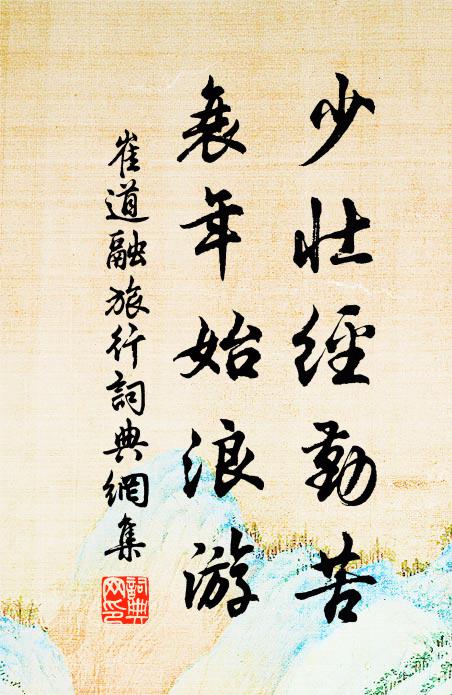 少壯經勤苦
衰年始浪游
崔道融旅行詞典網集
詞典
网印